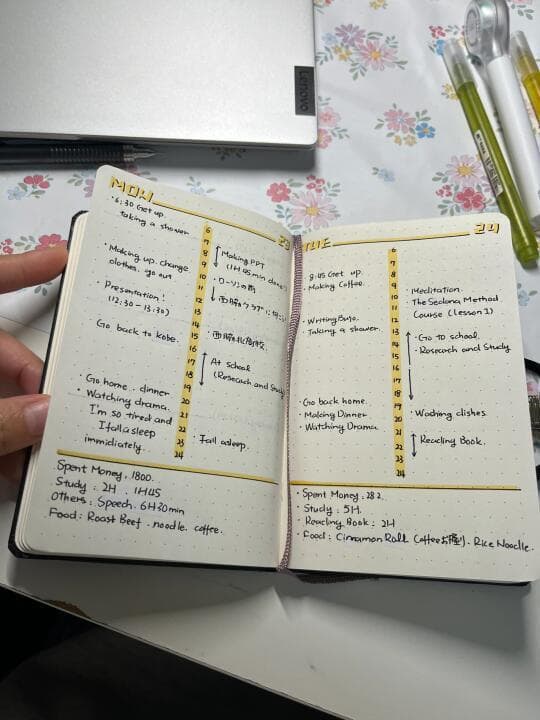 Lenovo
MON 23
6:30 Get up.
taking a shower
Making up. change
clothes. go out
Presentation!
(12:30 - 13:30)
Go back to kobe.
Go home. dinner
Watching drama.
I'm so tired and
I fall asleep
immidiately.
6
7
8
9
10
11
12
13
14
15
16
17
18
19
20
21
22
23
24
Making PPT
(1H45min done)
At school
(Reseach and Study
Fall asleep.
Spent Money. 1800.
Study : 2H . 1H45
Others : Speech. 6H30min
Food: Roast Beef . noodle. coffee.
TUE 24
8:45 Get up.
Making Coffee.
Writing Bujo.
Taking a shower.
Go back home.
Making Dinner
Watching Drama
6
7
8
9
10
11
12
13
14
15
16
17
18
19
20
21
22
23
24
Meditation.
The Sedona Method
Course (lesson 1)
Go to school.
Reseach and Study
Washing dishes.
Reading Book.
Spent Money : 282.
Study : 5H.
Reading Book : 2H
Food : Cinnamon Roll Coffee . Rice Noodle.